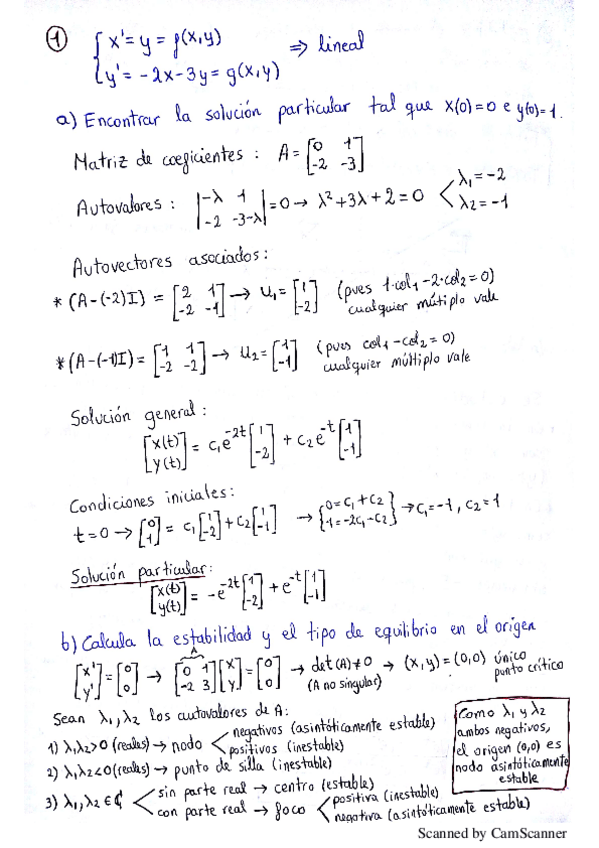 ① { x' = y = f(x,y)
{ y' = -2x-3y = g(x,y) ⇒ lineal
a) Encontrar la solución particular tal que x(0)=0 e y(0)=1.
Matriz de coeficientes : A = [0 1; -2 -3]
Autovalores : |-λ 1; -2 -3-λ| = 0 → λ²+3λ+2 = 0 < λ₁=-2
λ₂=-1
Autovectores asociados:
* (A-(-2)I) = [2 1; -2 -1] → u₁ = [1; -2] (pues 1·col₁-2·col₂=0)
cualquier múltiplo vale
* (A-(-1)I) = [1 1; -2 -2] → u₂ = [1; -1] (pues col₁-col₂=0)
cualquier múltiplo vale
Solución general :
[x(t); y(t)] = c₁e^-2t [1; -2] + c₂e^-t [1; -1]
Condiciones iniciales:
t=0 → [0; 1] = c₁[1; -2] + c₂[1; -1] → {0=c₁+c₂; 1=-2c₁-c₂} → c₁=-1, c₂=1
Solución particular:
[x(t); y(t)] = -e^-2t [1; -2] + e^-t [1; -1]
b) Calcula la estabilidad y el tipo de equilibrio en el origen
A
[x'; y'] = [0; 0] → [0 1; -2 3][x; y] = [0; 0] → det(A)≠0 → (x,y)=(0,0) único
(A no singular) punto crítico
Sean λ₁,λ₂ los autovalores de A:
1) λ₁λ₂>0 (reales) → nodo < negativos (asintóticamente estable)
positivos (inestable)
2) λ₁λ₂<0 (reales) → punto de silla (inestable)
3) λ₁,λ₂ ∈ ₵ < sin parte real → centro (estable)
con parte real → foco < positiva (inestable)
negativa (asintóticamente estable)
Como λ₁ y λ₂
ambos negativos,
el origen (0,0) es
nodo asintóticamente
estable
Scanned by CamScanner